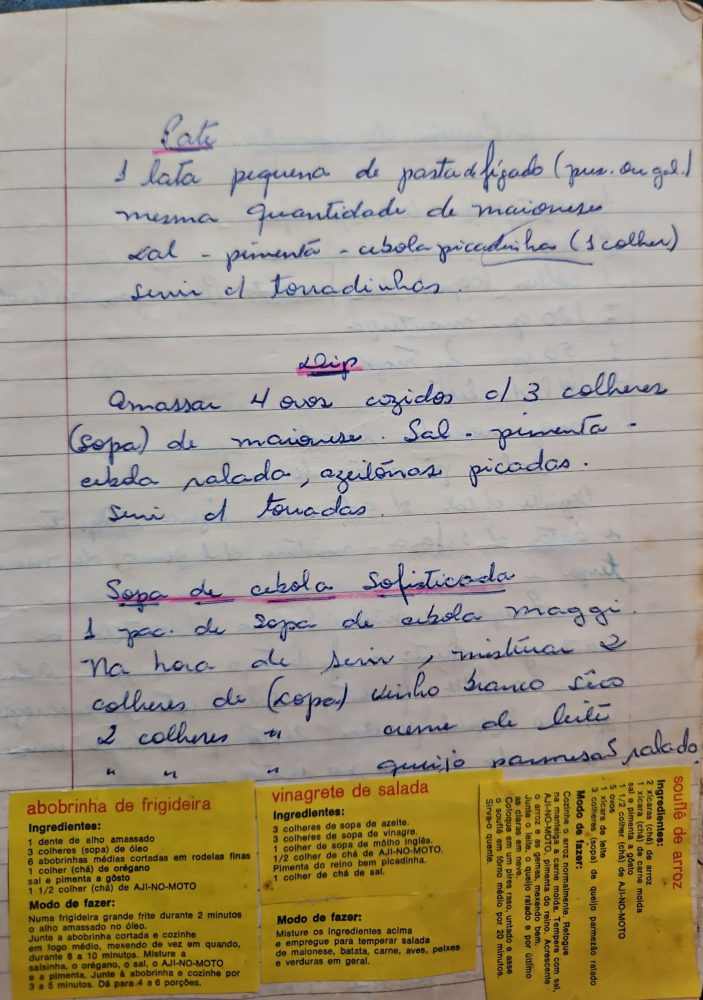 Patê
1 lata pequena de pasta de fígado (pres. ou gal.)
mesma quantidade de maionese
sal - pimenta - cebola picadinha (1 colher)
servir c/ torradinhas.
Dip
Amassar 4 ovos cozidos c/ 3 colheres
(sopa) de maionese. Sal - pimenta -
cebola ralada, azeitonas picadas.
Servir c/ torradas.
Sopa de cebola Sofisticada
1 pac. de sopa de cebola maggi.
Na hora de servir, misturar 2
colheres de (sopa) vinho branco sêco
2 colheres " creme de leite
" " " queijo parmesão ralado
abobrinha de frigideira
Ingredientes:
1 dente de alho amassado
3 colheres (sopa) de óleo
6 abobrinhas médias cortadas em rodelas finas
1 colher (chá) de orégano
sal e pimenta a gôsto
1 1/2 colher (chá) de AJI-NO-MOTO
Modo de fazer:
Numa frigideira grande frite durante 2 minutos
o alho amassado no óleo.
Junte a abobrinha cortada e cozinhe
em fogo médio, mexendo de vez em quando,
durante 8 a 10 minutos. Misture a
salsinha, o orégano, o sal, o AJI-NO-MOTO
e a pimenta. Junte à abobrinha e cozinhe por
3 a 5 minutos. Dá para 4 a 6 porções.
vinagrete de salada
Ingredientes:
3 colheres de sopa de azeite.
3 colheres de sopa de vinagre.
1 colher de sopa de môlho inglês.
1/2 colher de chá de AJI-NO-MOTO.
Pimenta do reino bem picadinha.
1 colher de chá de sal.
Modo de fazer:
Misture os ingredientes acima
e empregue para temperar salada
de maionese, batata, carne, aves, peixes
e verduras em geral.
souflê de arroz
Ingredientes:
2 xícaras (chá) de arroz
1 xícara (chá) de carne moída
sal e pimenta a gôsto
1 1/2 colher (chá) de AJI-NO-MOTO
5 ovos
1 xícara de leite
3 colheres (sopa) de queijo parmezão ralado
Modo de fazer:
Cozinhe o arroz normalmente. Refogue
na manteiga a carne moída. Tempere com sal,
AJI-NO-MOTO e pimenta do reino. Acrescente
o arroz e as gemas, mexendo bem.
Junte o leite, queijo ralado e por último
as claras em neve.
Coloque em um pirex raso, untado e asse
o souflê em forno médio por 20 minutos.
Sirva-o quente.